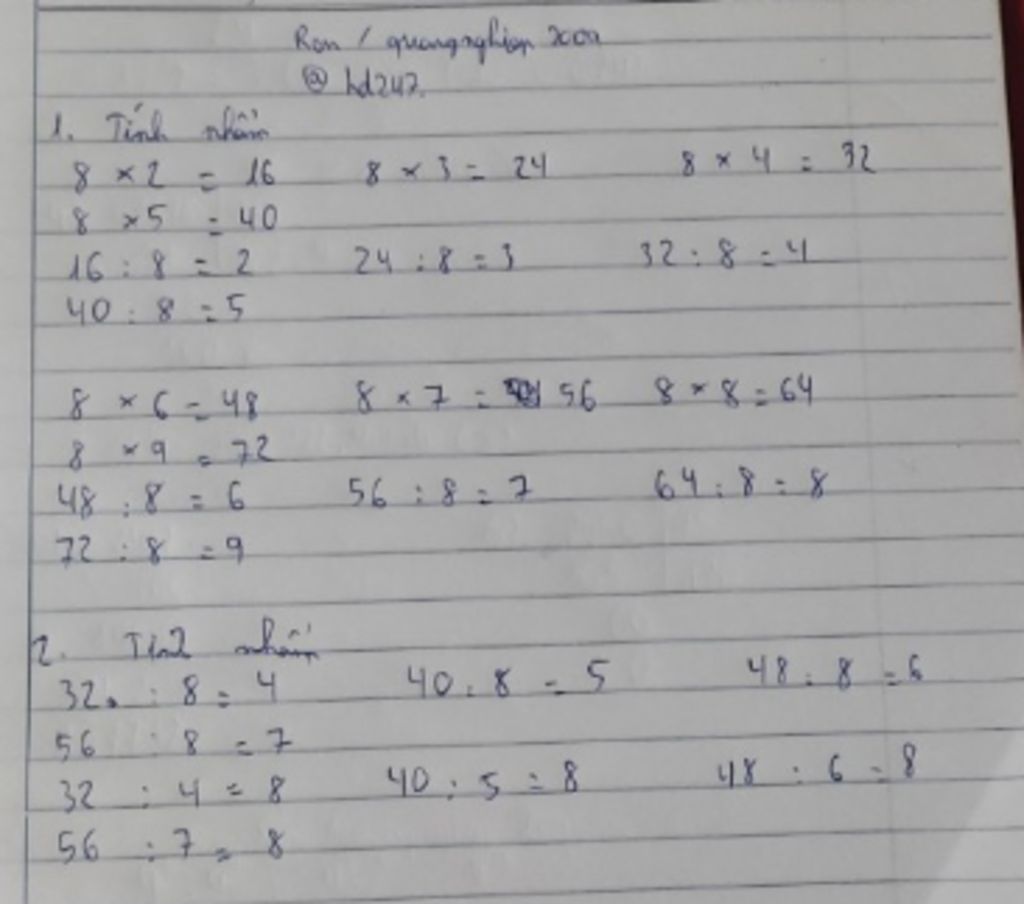 Ron / quangnghiep 2009
@ hd247.
1. Tính nhẩm
8 × 2 = 16 8 × 3 = 24 8 × 4 = 32
8 × 5 = 40
16 : 8 = 2 24 : 8 = 3 32 : 8 = 4
40 : 8 = 5
8 × 6 = 48 8 × 7 = 56 8 × 8 = 64
8 × 9 = 72
48 : 8 = 6 56 : 8 = 7 64 : 8 = 8
72 : 8 = 9
2. Tính nhẩm
32 : 8 = 4 40 : 8 = 5 48 : 8 = 6
56 : 8 = 7
32 : 4 = 8 40 : 5 = 8 48 : 6 = 8
56 : 7 = 8